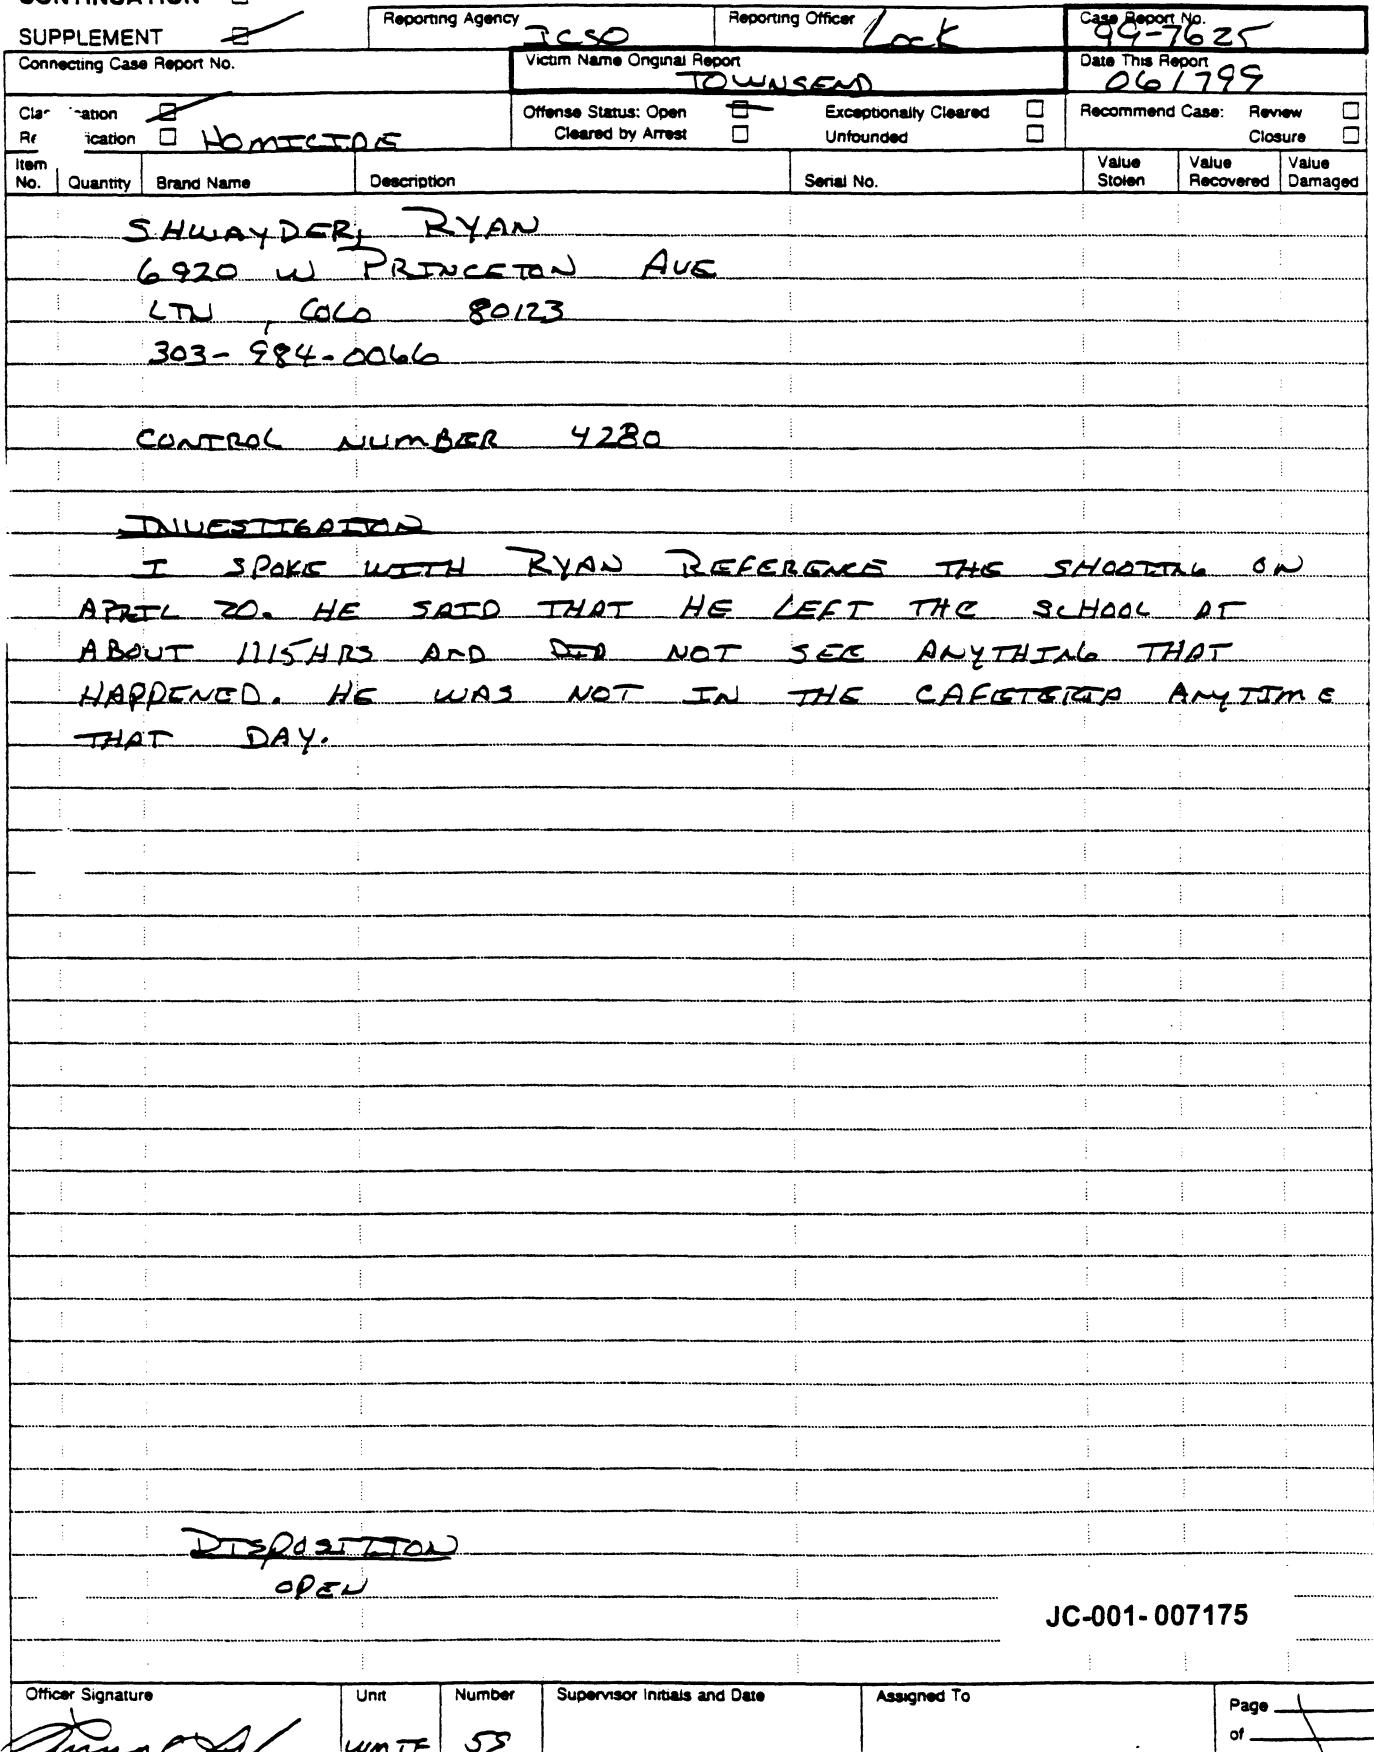 CONTINUATION
SUPPLEMENT
Reporting Agency JCSO
Reporting Officer Lock
Case Report No. 99-7625
Connecting Case Report No.
Victim Name Original Report TOWNSEND
Date This Report 061799
Classification
Offense Status: Open
Exceptionally Cleared
Recommend Case: Review
ication HOMICIDE
Cleared by Arrest
Unfounded
Closure
Item No. Quantity Brand Name Description Serial No. Value Stolen Value Recovered Value Damaged
SHWAYDER, RYAN
6920 W PRINCETON AVE
LTN, COLO 80123
303-984-0066
CONTROL NUMBER 4280
INVESTIGATION
I SPOKE WITH RYAN REFERENCE THE SHOOTING ON
APRIL 20. HE SAID THAT HE LEFT THE SCHOOL AT
ABOUT 1115HRS AND DID NOT SEE ANYTHING THAT
HAPPENED. HE WAS NOT IN THE CAFETERIA ANYTIME
THAT DAY.
DISPOSITION
OPEN
JC-001-007175
Officer Signature
Unit Number Supervisor Initials and Date Assigned To Page
of
55